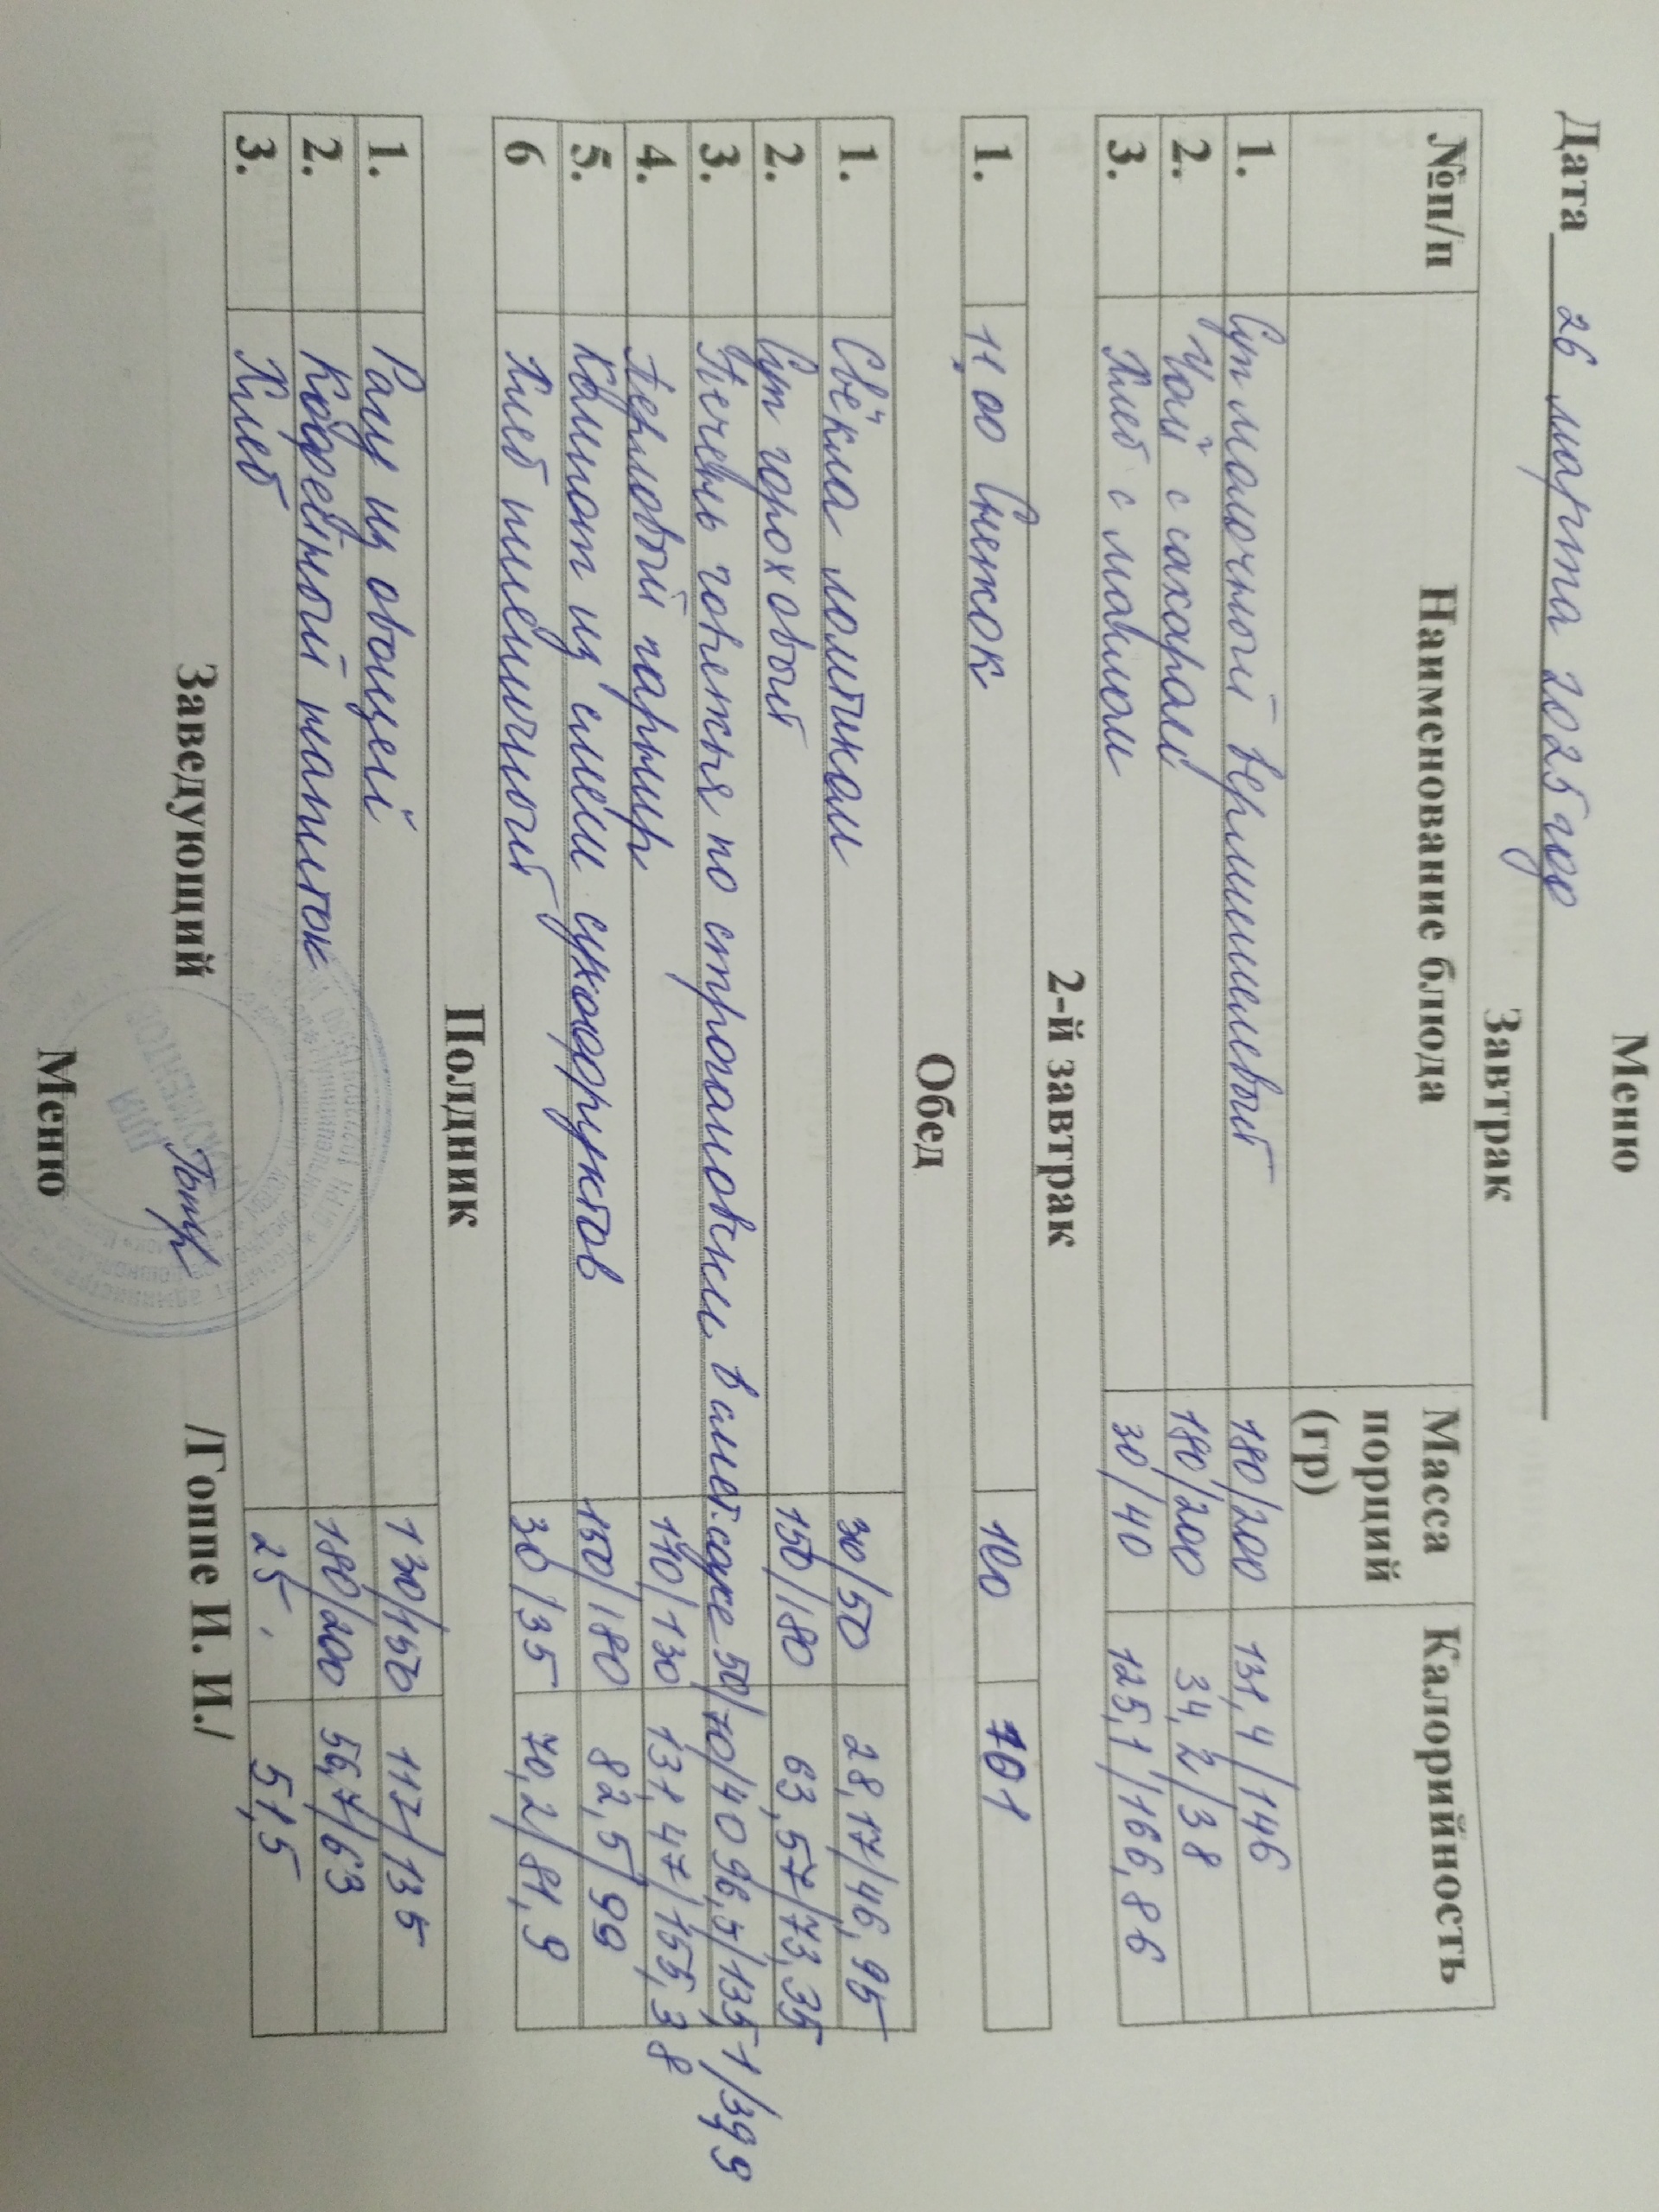 Меню
Дата 26 марта 2025 год
Завтрак
№п/п Наименование блюда Масса порций (гр) Калорийность
1. Суп молочный вермишелевый 180/200 131,4/146
2. Чай с сахаром 180/200 34,2/38
3. Хлеб с маслом 30/40 125,1/166,86
2-й завтрак
1. 11,00 Снежок 100 701
Обед
1. Свёкла ломтиком 30/50 28,17/46,95
2. Суп гороховый 150/180 63,57/73,35
3. Печень говежья по строгановски в смет. соусе 50/70/40 96,5/135,1/39,9
4. Перловый гарнир 110/130 131,47/155,38
5. Компот из смеси сухофруктов 150/180 82,5/99
6 Хлеб пшеничный 30/35 70,2/81,9
Полдник
1. Рагу из овощей 130/150 117/135
2. Кофейный напиток 180/200 56,7/63
3. Хлеб 25 51,5
Заведующий /Гоппе И. И./
Меню